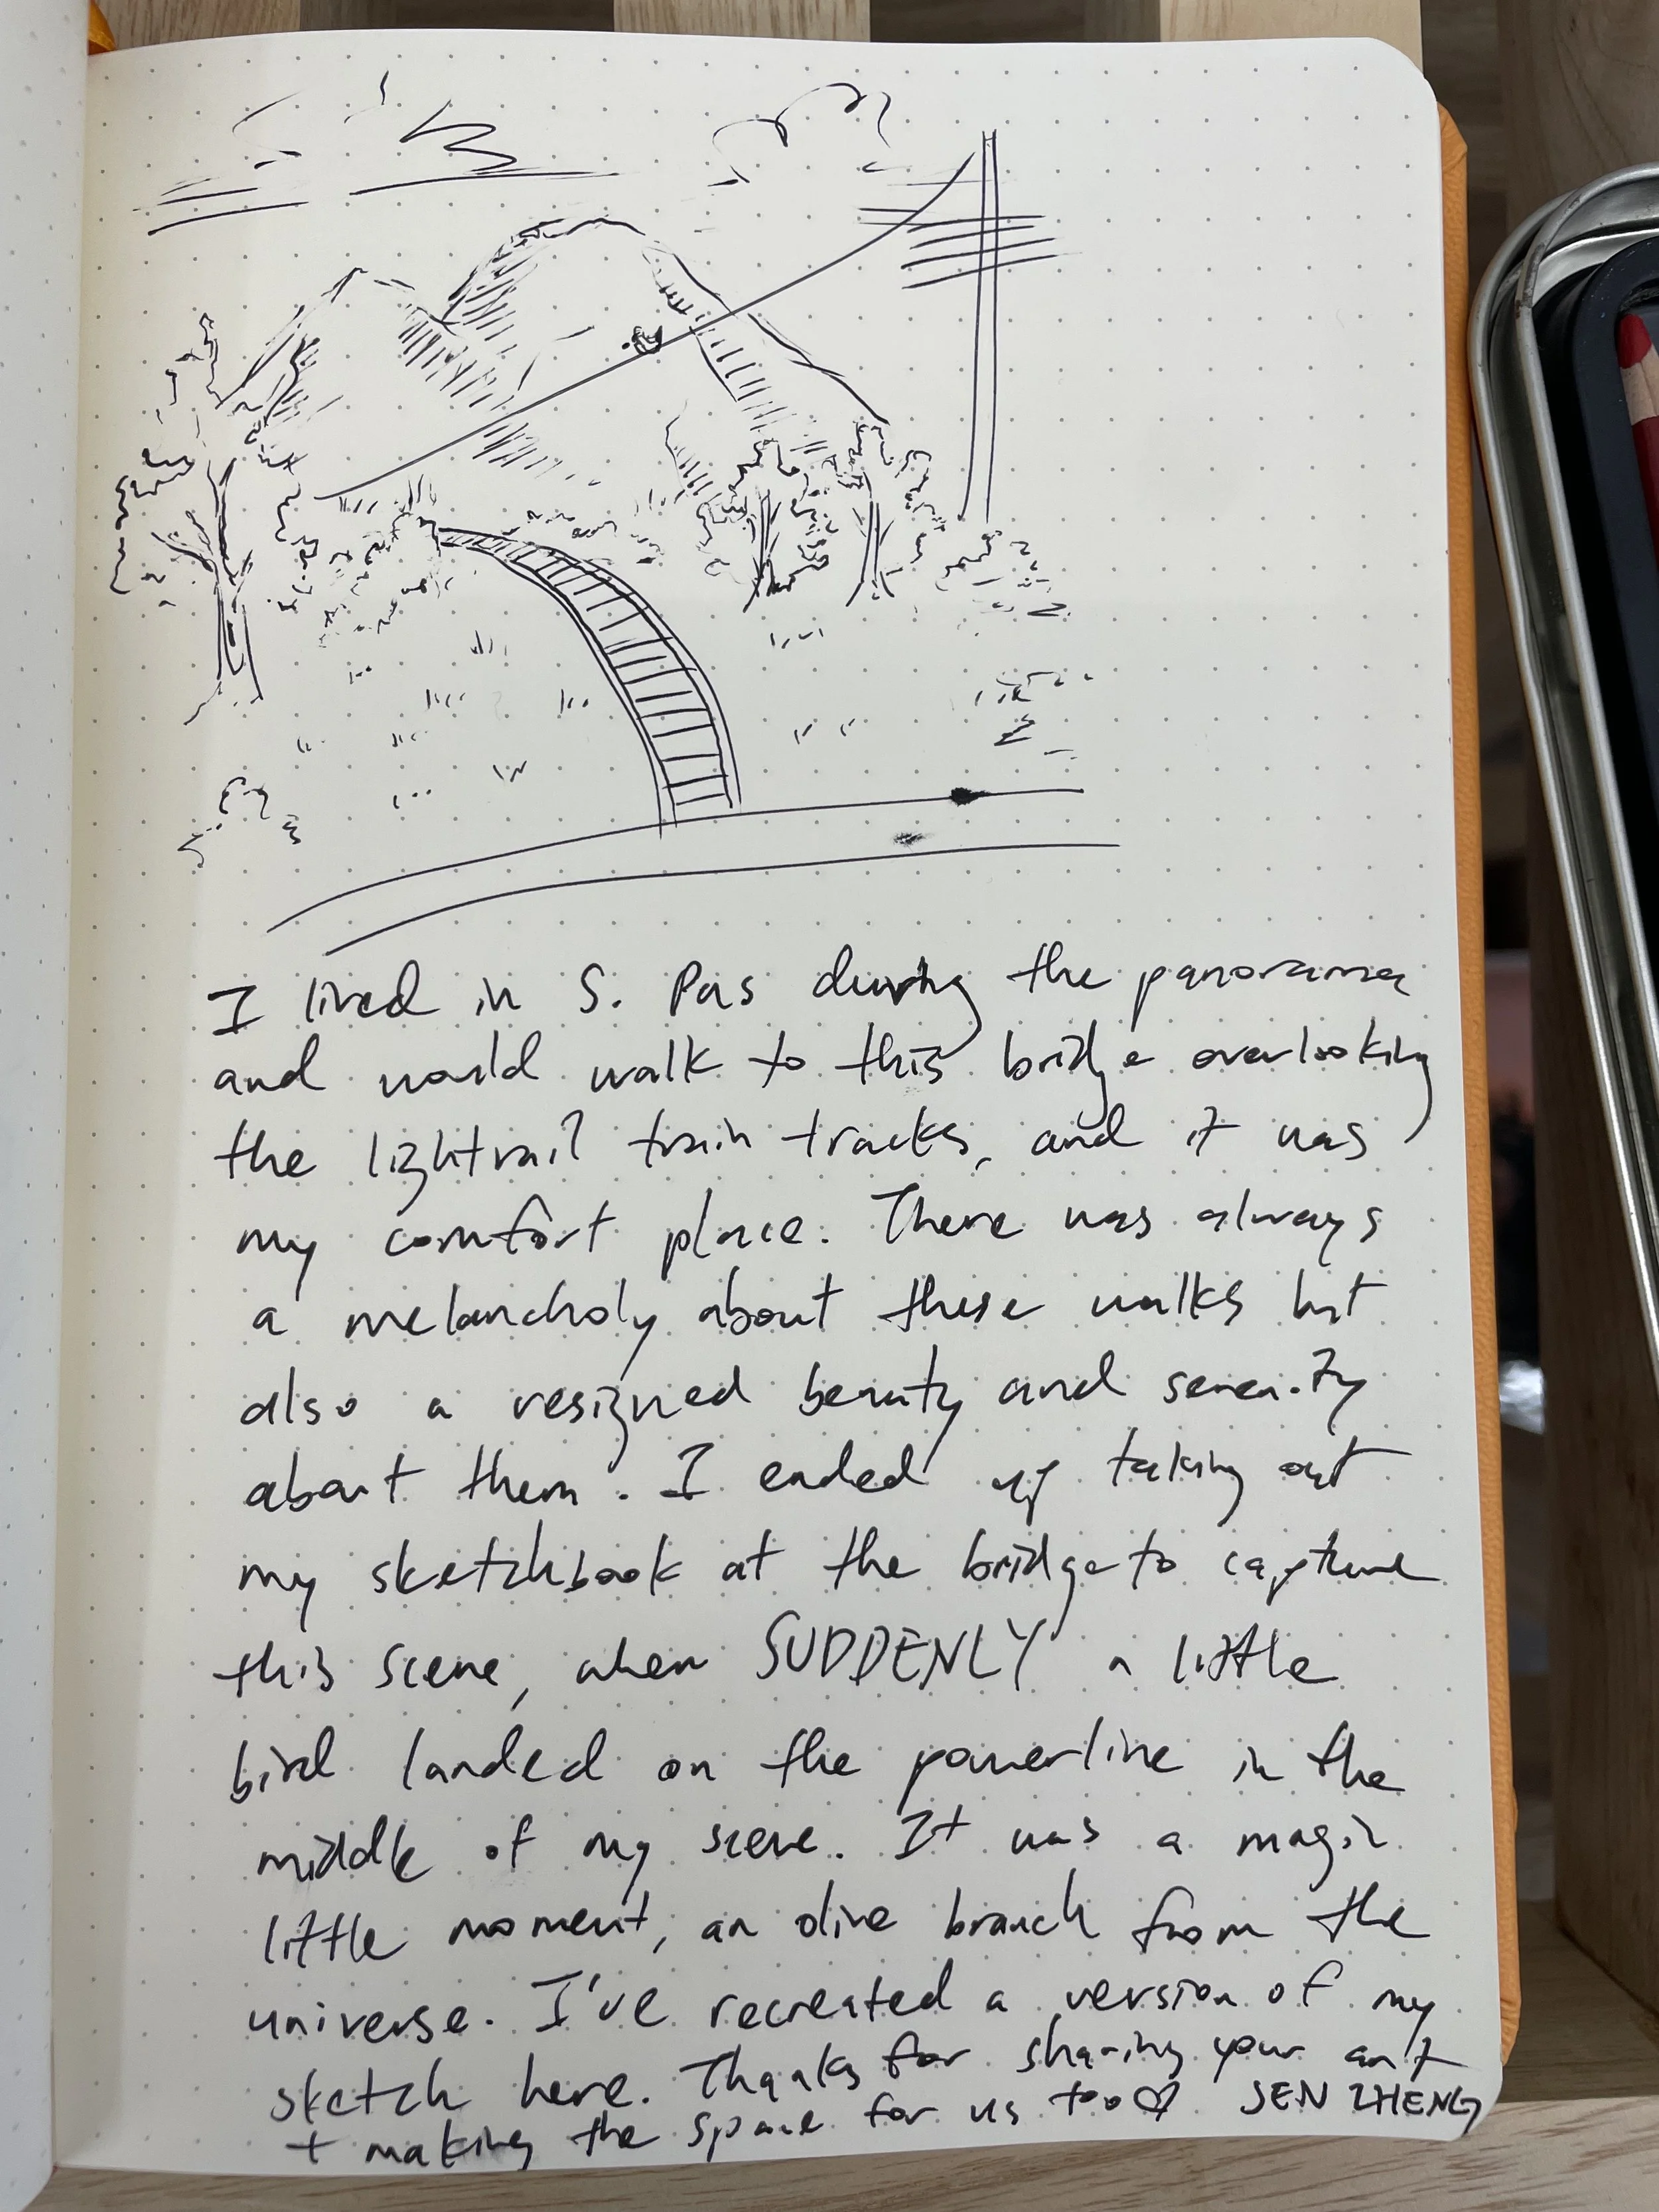 I lived in S. Pas during the panorama
and would walk to this bridge overlooking
the lightrail train tracks, and it was
my comfort place. There was always
a melancholy about these walks but
also a resigned beauty and serenity
about them. I ended up taking out
my sketchbook at the bridge to capture
this scene, when SUDDENLY a little
bird landed on the powerline in the
middle of my scene. It was a magic
little moment, an olive branch from the
universe. I've recreated a version of my
sketch here. Thanks for sharing your art
+ making the space for us too♡ JEN ZHENG